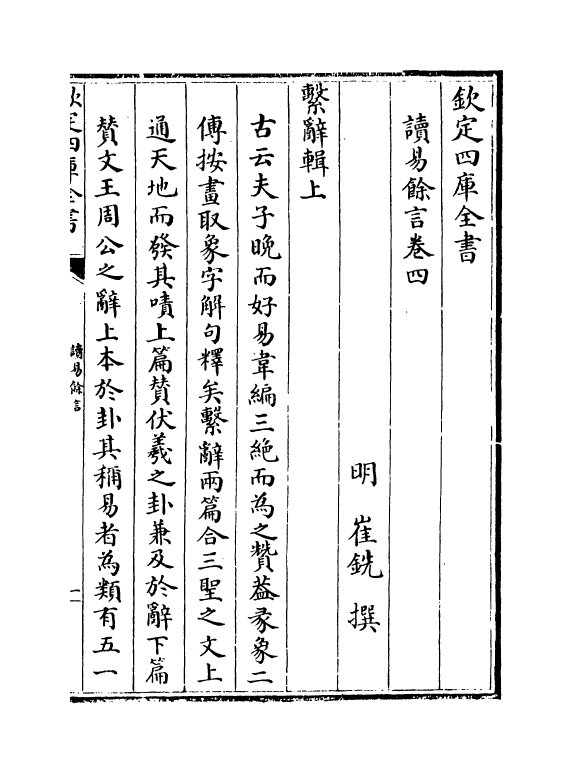 欽定四庫全書
讀易餘言卷四
明 崔銑 撰
繫辭輯上
古云夫子晚而好易韋編三絶而為之贊葢彖象二
傳按畫取象字解句釋矣繫辭兩篇合三聖之文上
通天地而發其嘖上篇賛伏羲之卦兼及於辭下篇
賛文王周公之辭上本於卦其稱易者為類有五一
欽定四庫全書
讀易餘言
一